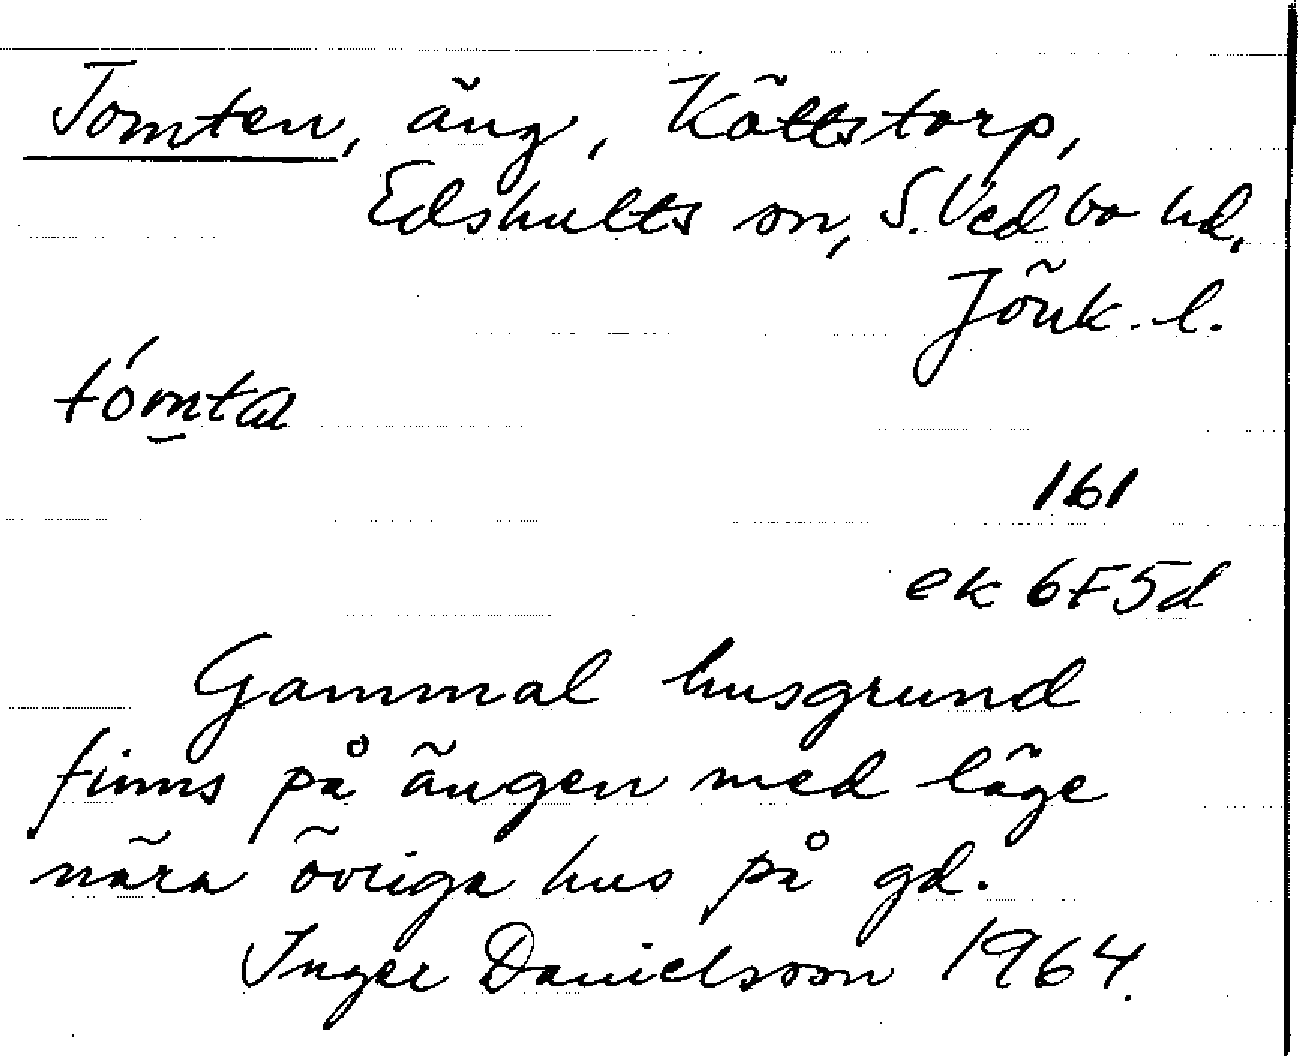 Tomten, äng, Kättstorp,
Edshults sn, S. Vedbo hd,
Jönk. l.
tómta
161
ek 6F5d
Gammal husgrund
finns på ängen med läge
nära övriga hus på gd.
Inger Danielsson 1964.